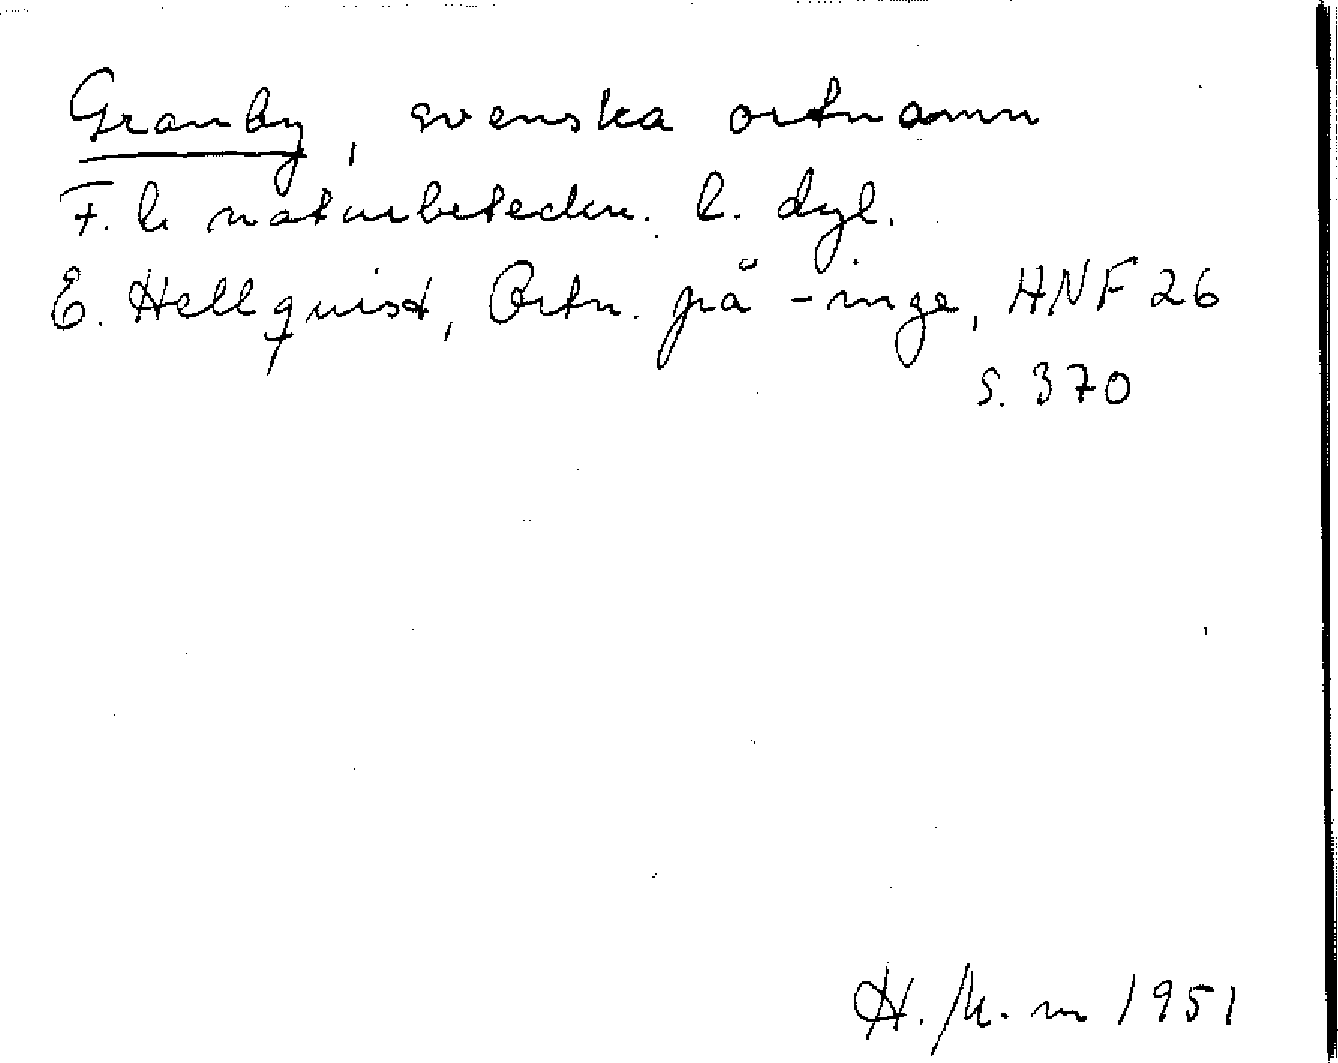 Granby, svenska ortnamn
F. l. naturbeteckn. l. dyl.
E. Hellquist, Ortn. på -inge, HNF 26
s. 370
1951